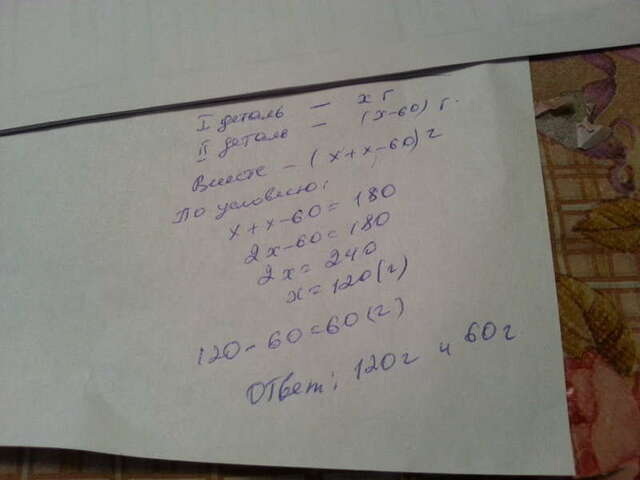 I деталь — x г
II деталь — (x-60) г.
Вместе — (x+x-60) г
По условию:
x+x-60=180
2x-60=180
2x=240
x=120(г)
120-60=60(г)
Ответ: 120г и 60г